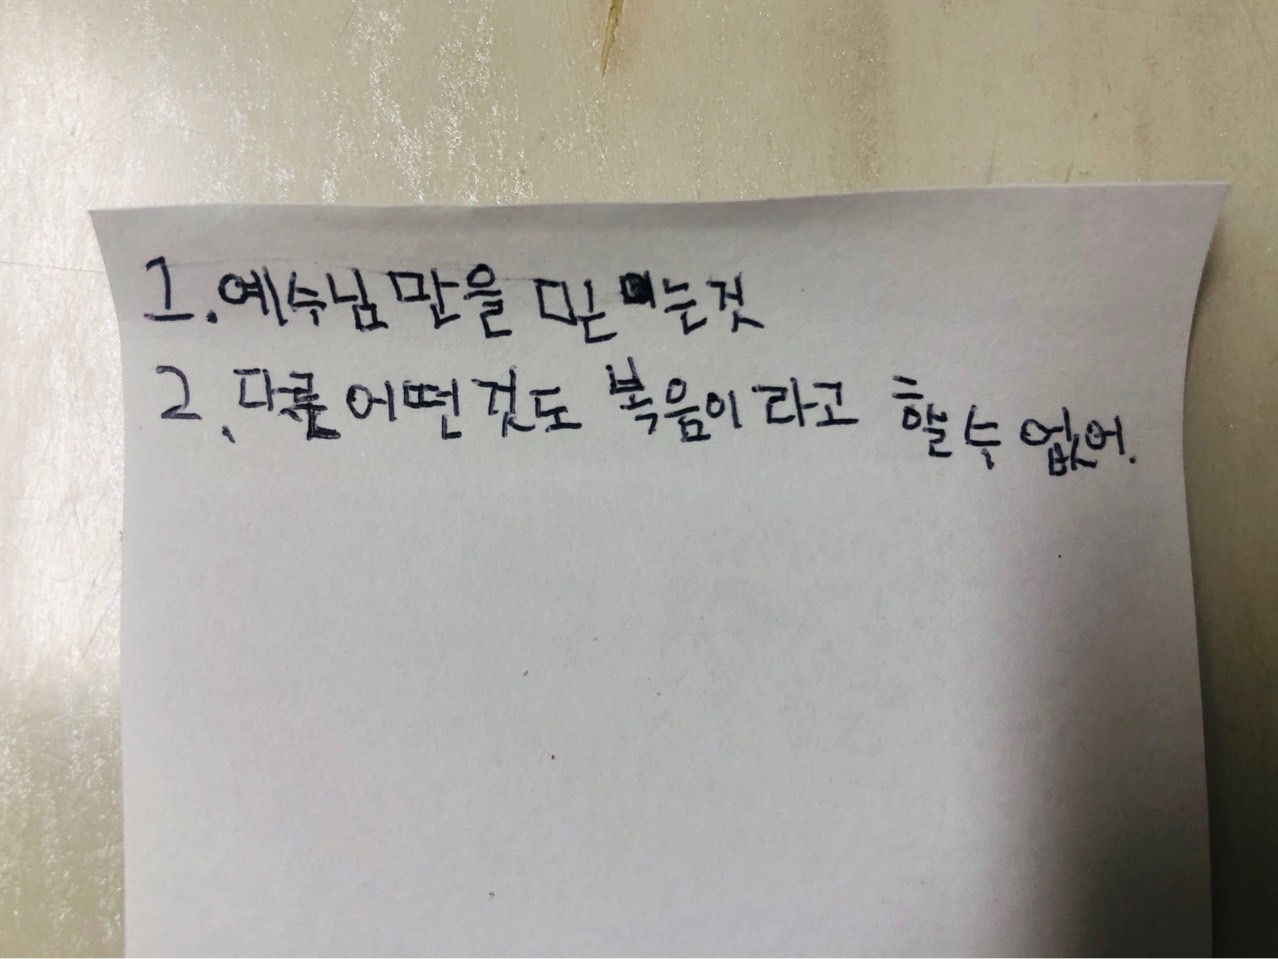 1. 예수님 만을 믿는것
2. 다른 어떤 것도 복음이라고 할 수 없어.